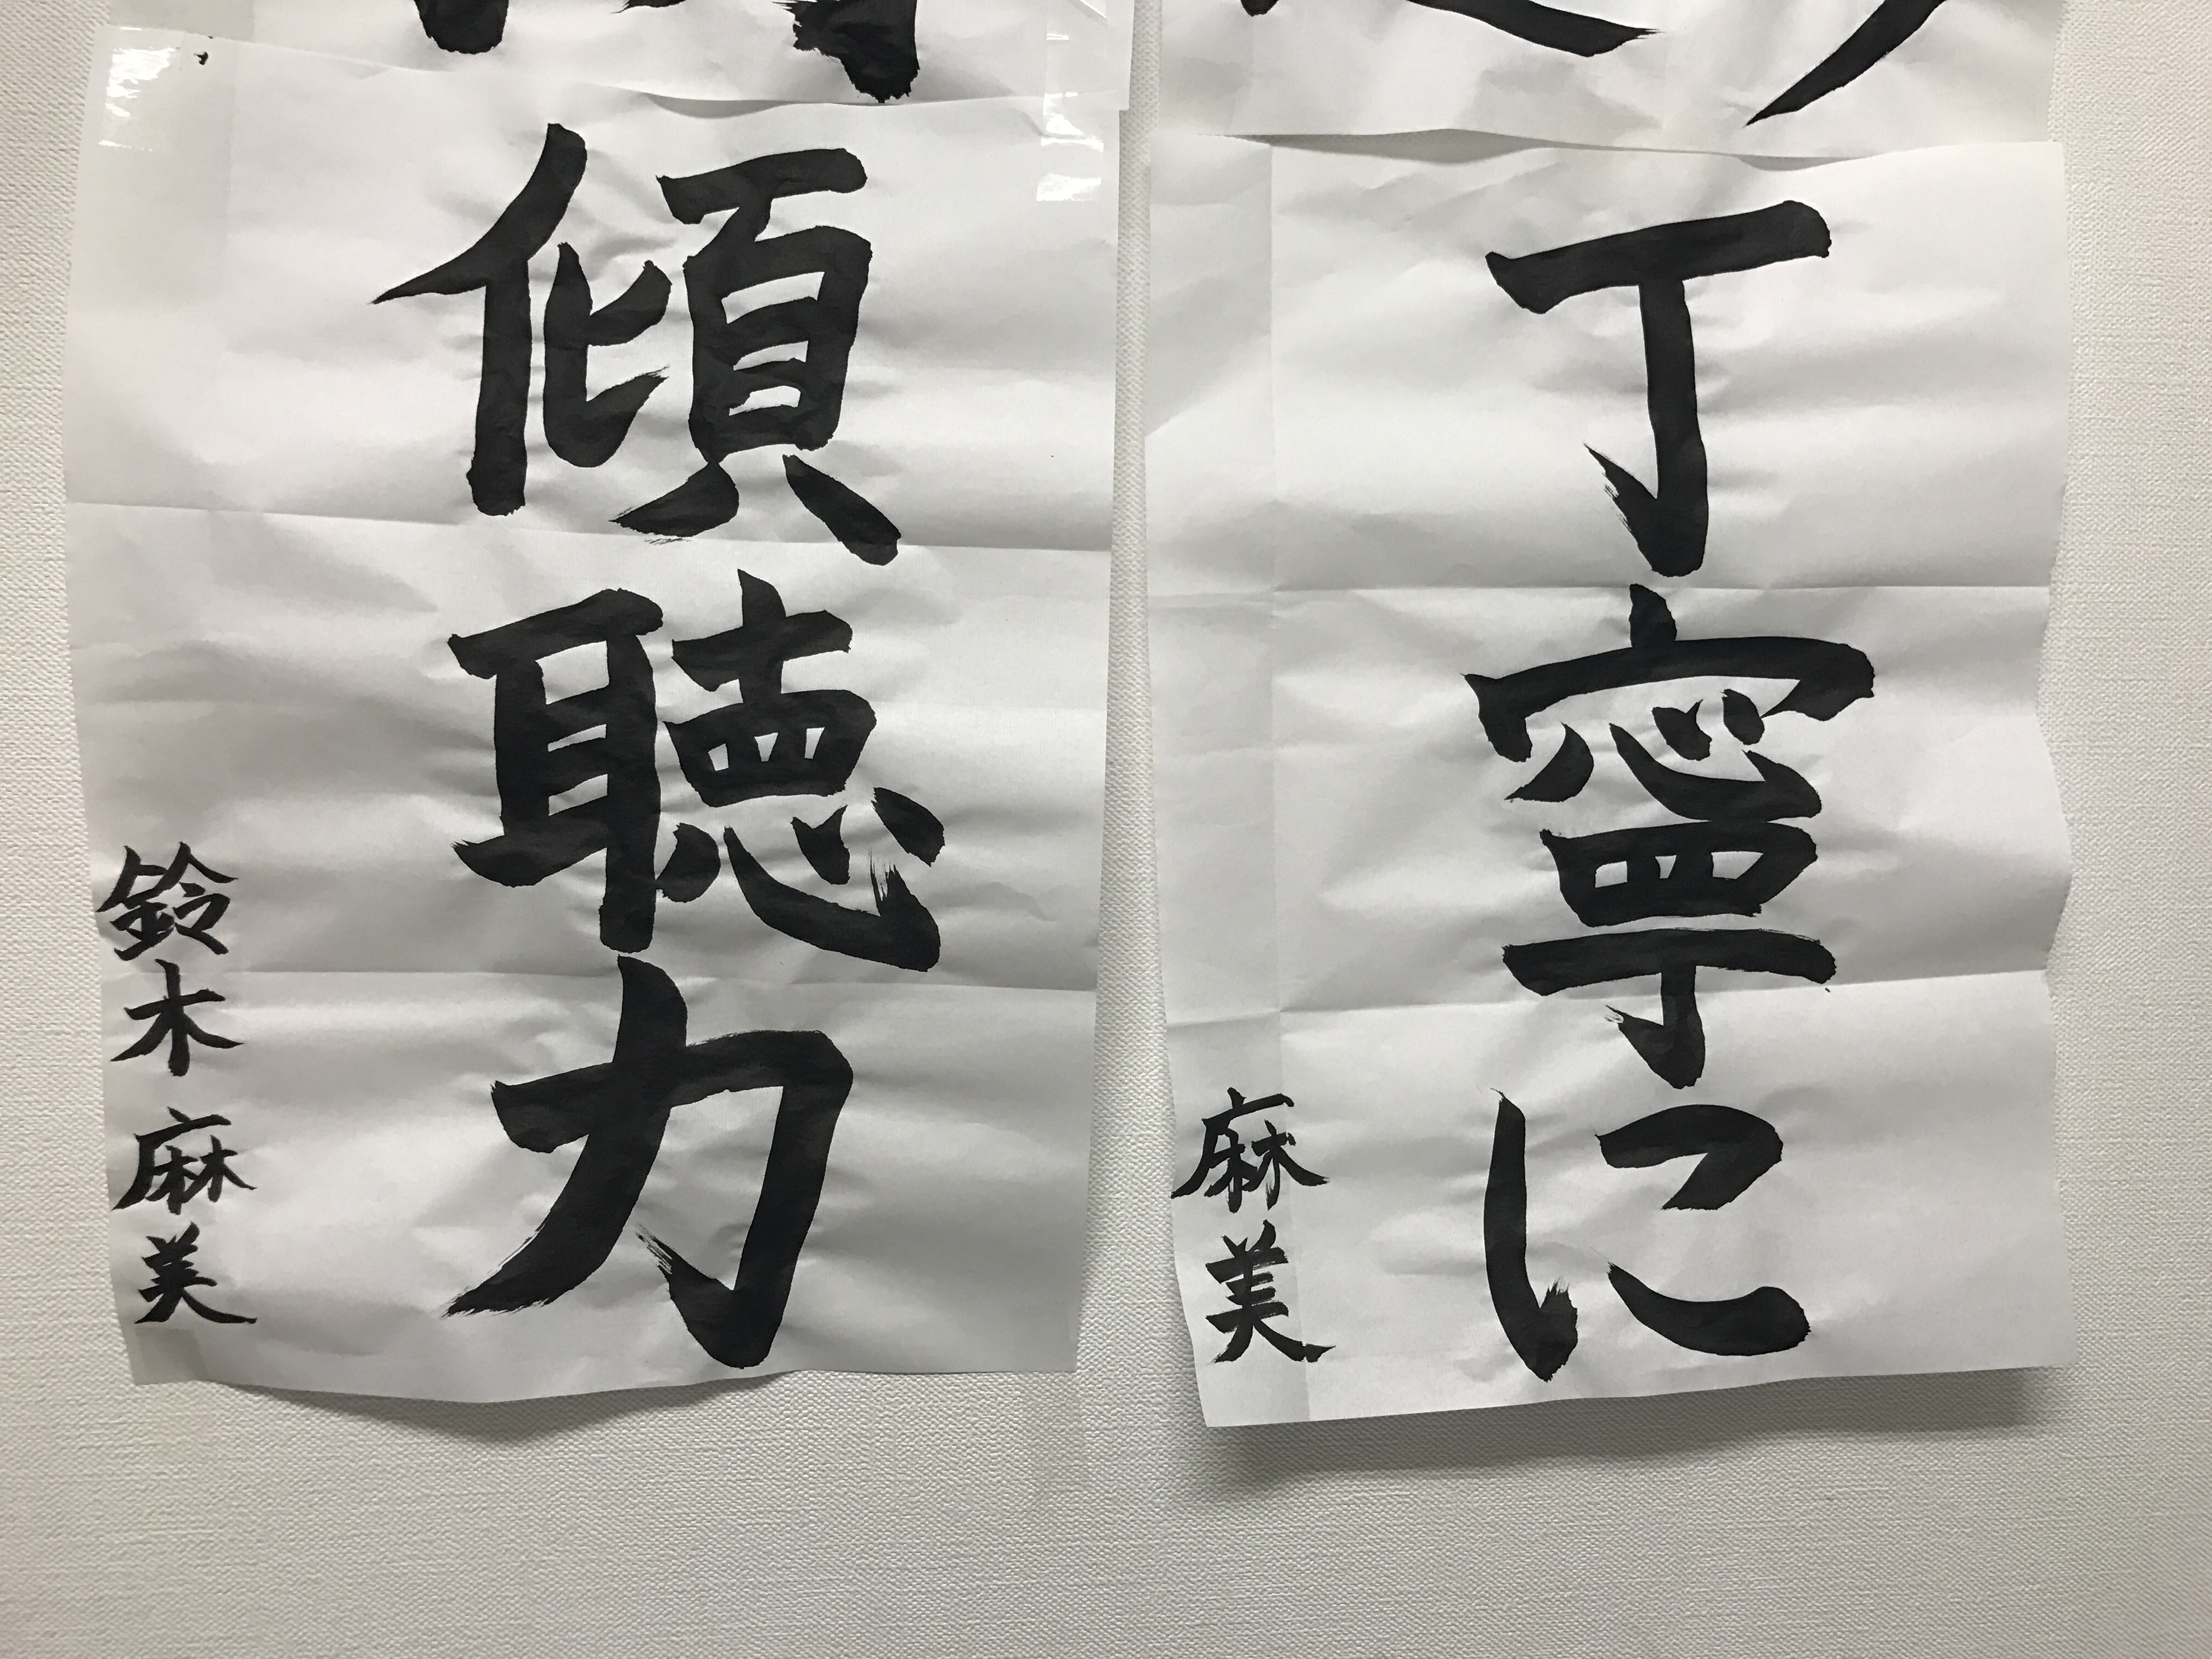 丁寧に
麻美
傾聴力
鈴木 麻美